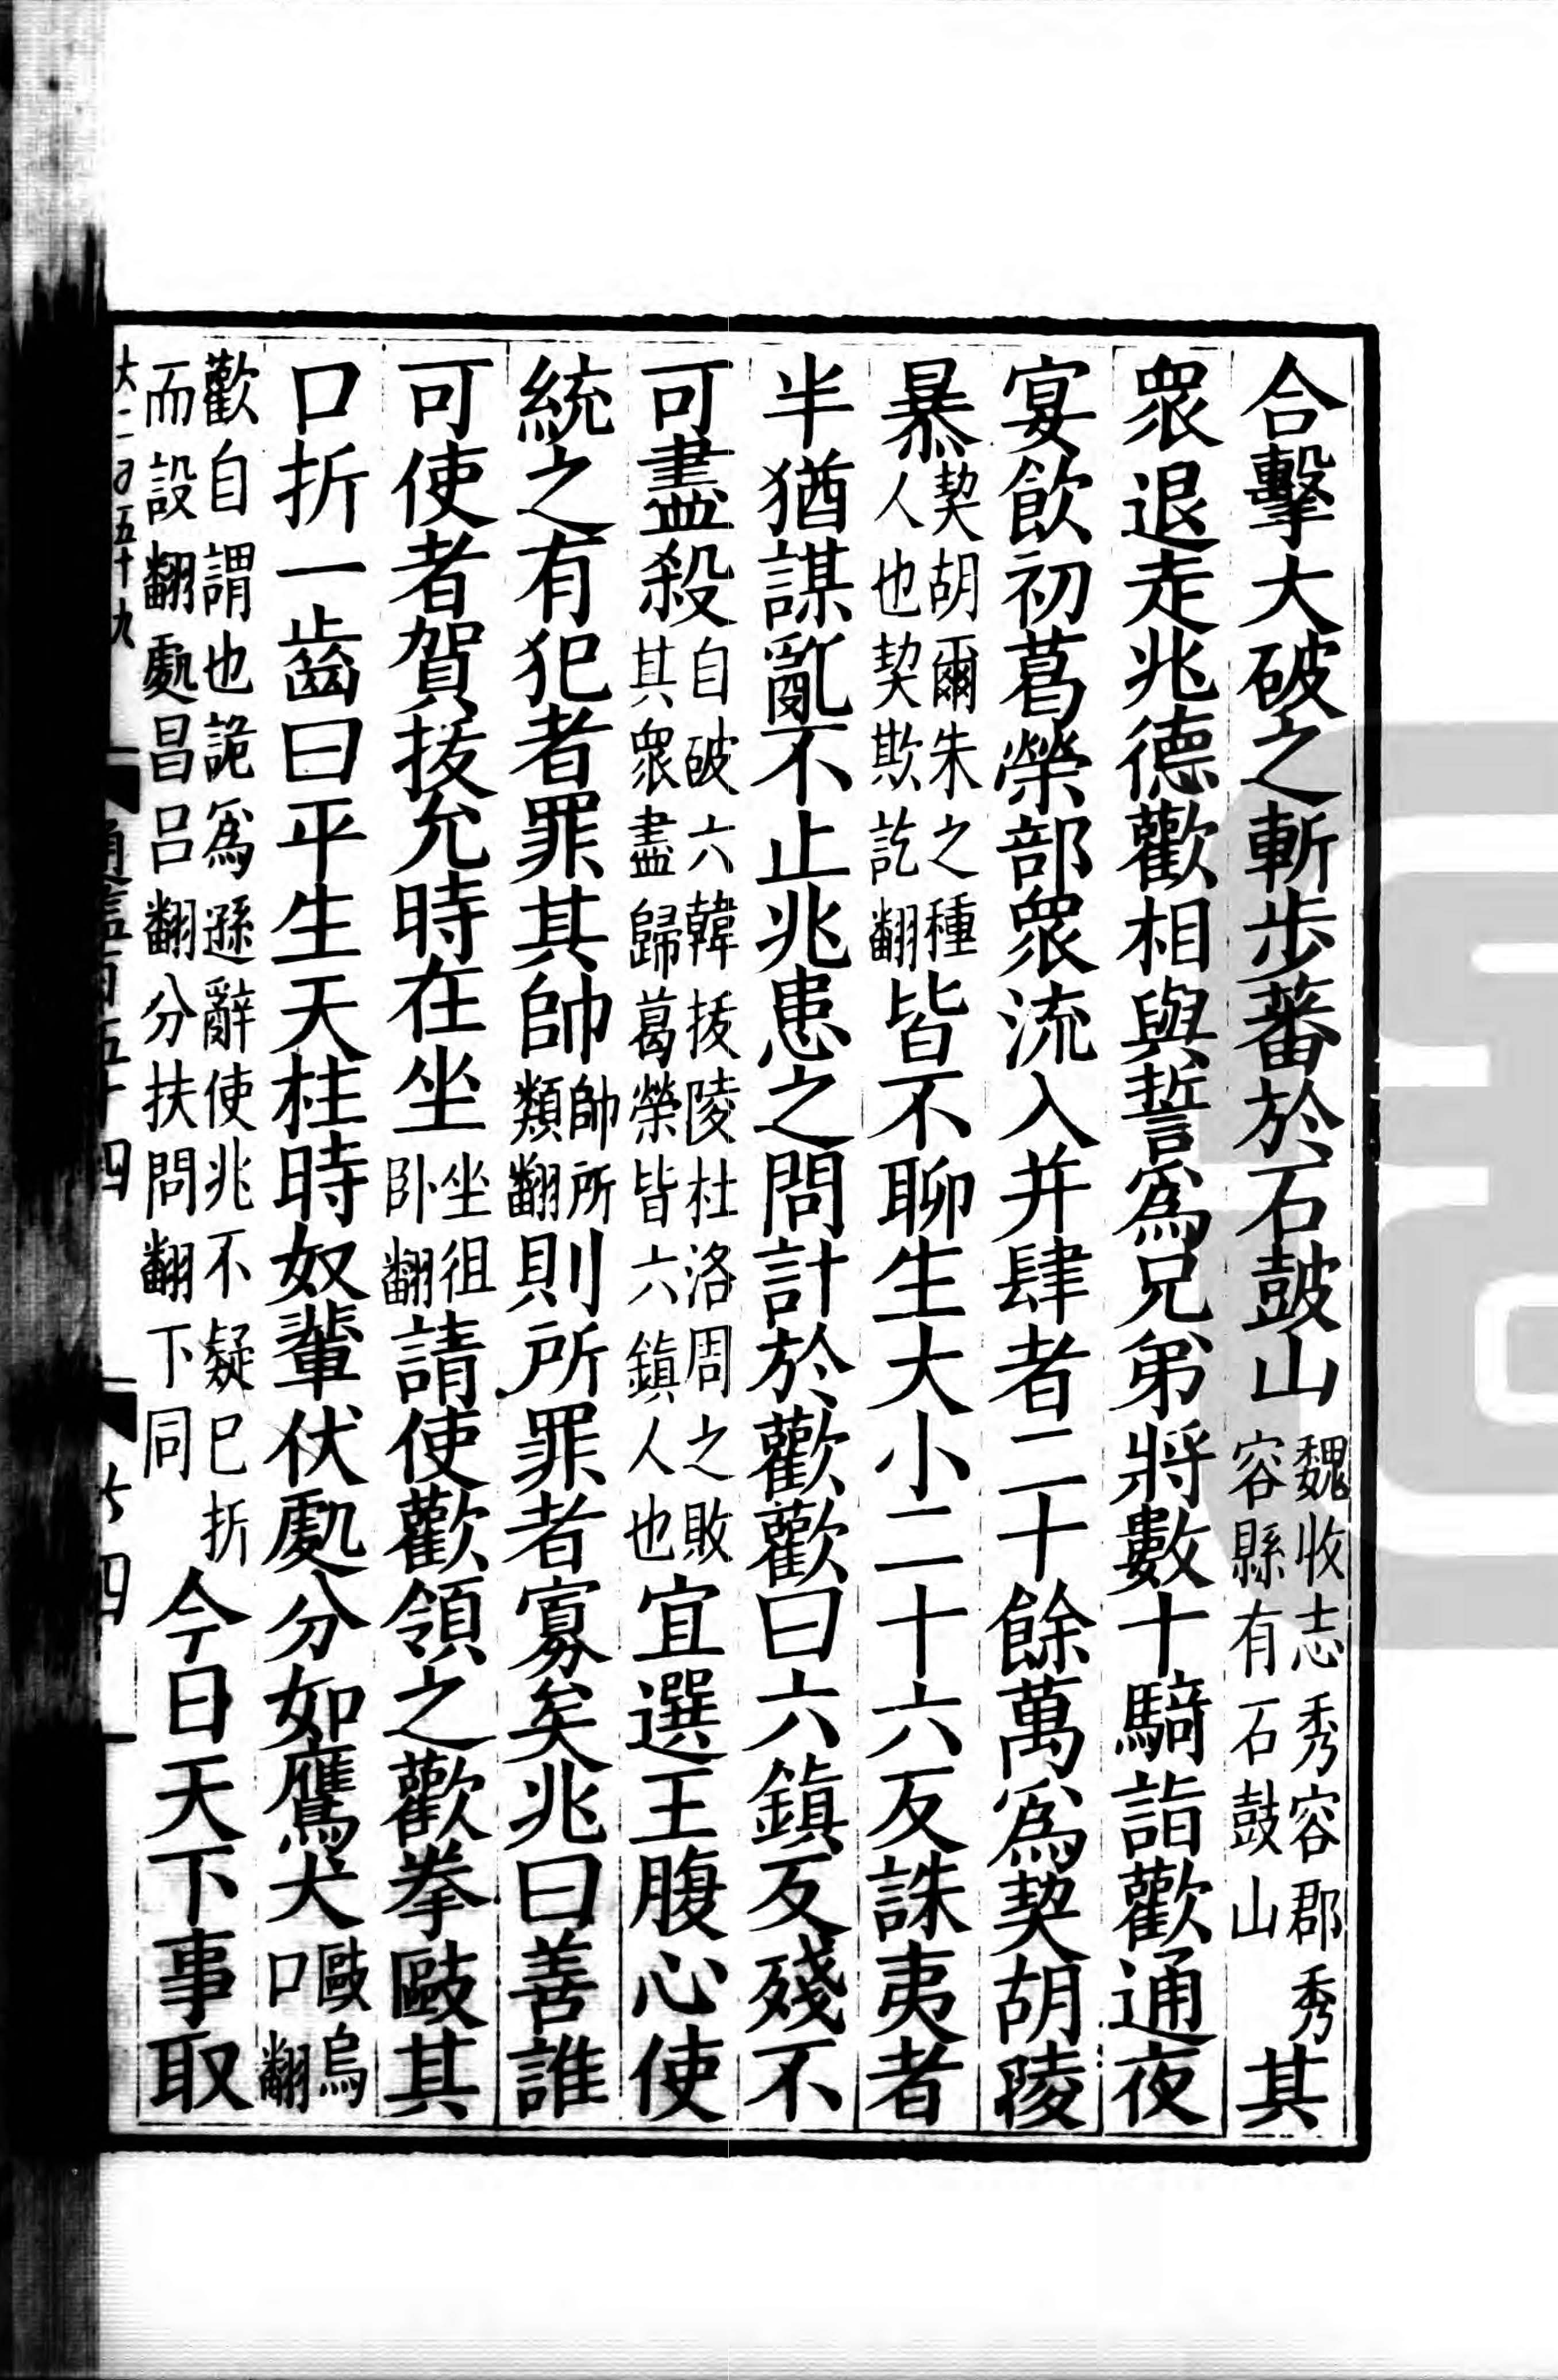 合擊大破之斬步蕃於石鼓山魏收志秀容郡秀容縣有石鼓山其
衆退走兆德歡相與誓爲兄弟將數十騎詣歡通夜
宴飲初葛榮部衆流入并肆者二十餘萬爲契胡陵
暴契胡爾朱之種人也契欺訖翻皆不聊生大小二十六反誅夷者
半猶謀亂不止兆患之問計於歡歡曰六鎮反殘不
可盡殺自破六韓拔陵杜洛周之敗其衆盡歸葛榮皆六鎮人也宜選王腹心使
統之有犯者罪其帥帥所類翻則所罪者寡矣兆曰善誰
可使者賀拔允時在坐坐徂卧翻請使歡領之歡拳毆其
口折一齒曰平生天柱時奴輩伏處分如鷹犬毆烏口翻
歡自謂也詭爲遜辭使兆不疑已折而設翻處昌呂翻分扶問翻下同今日天下事取